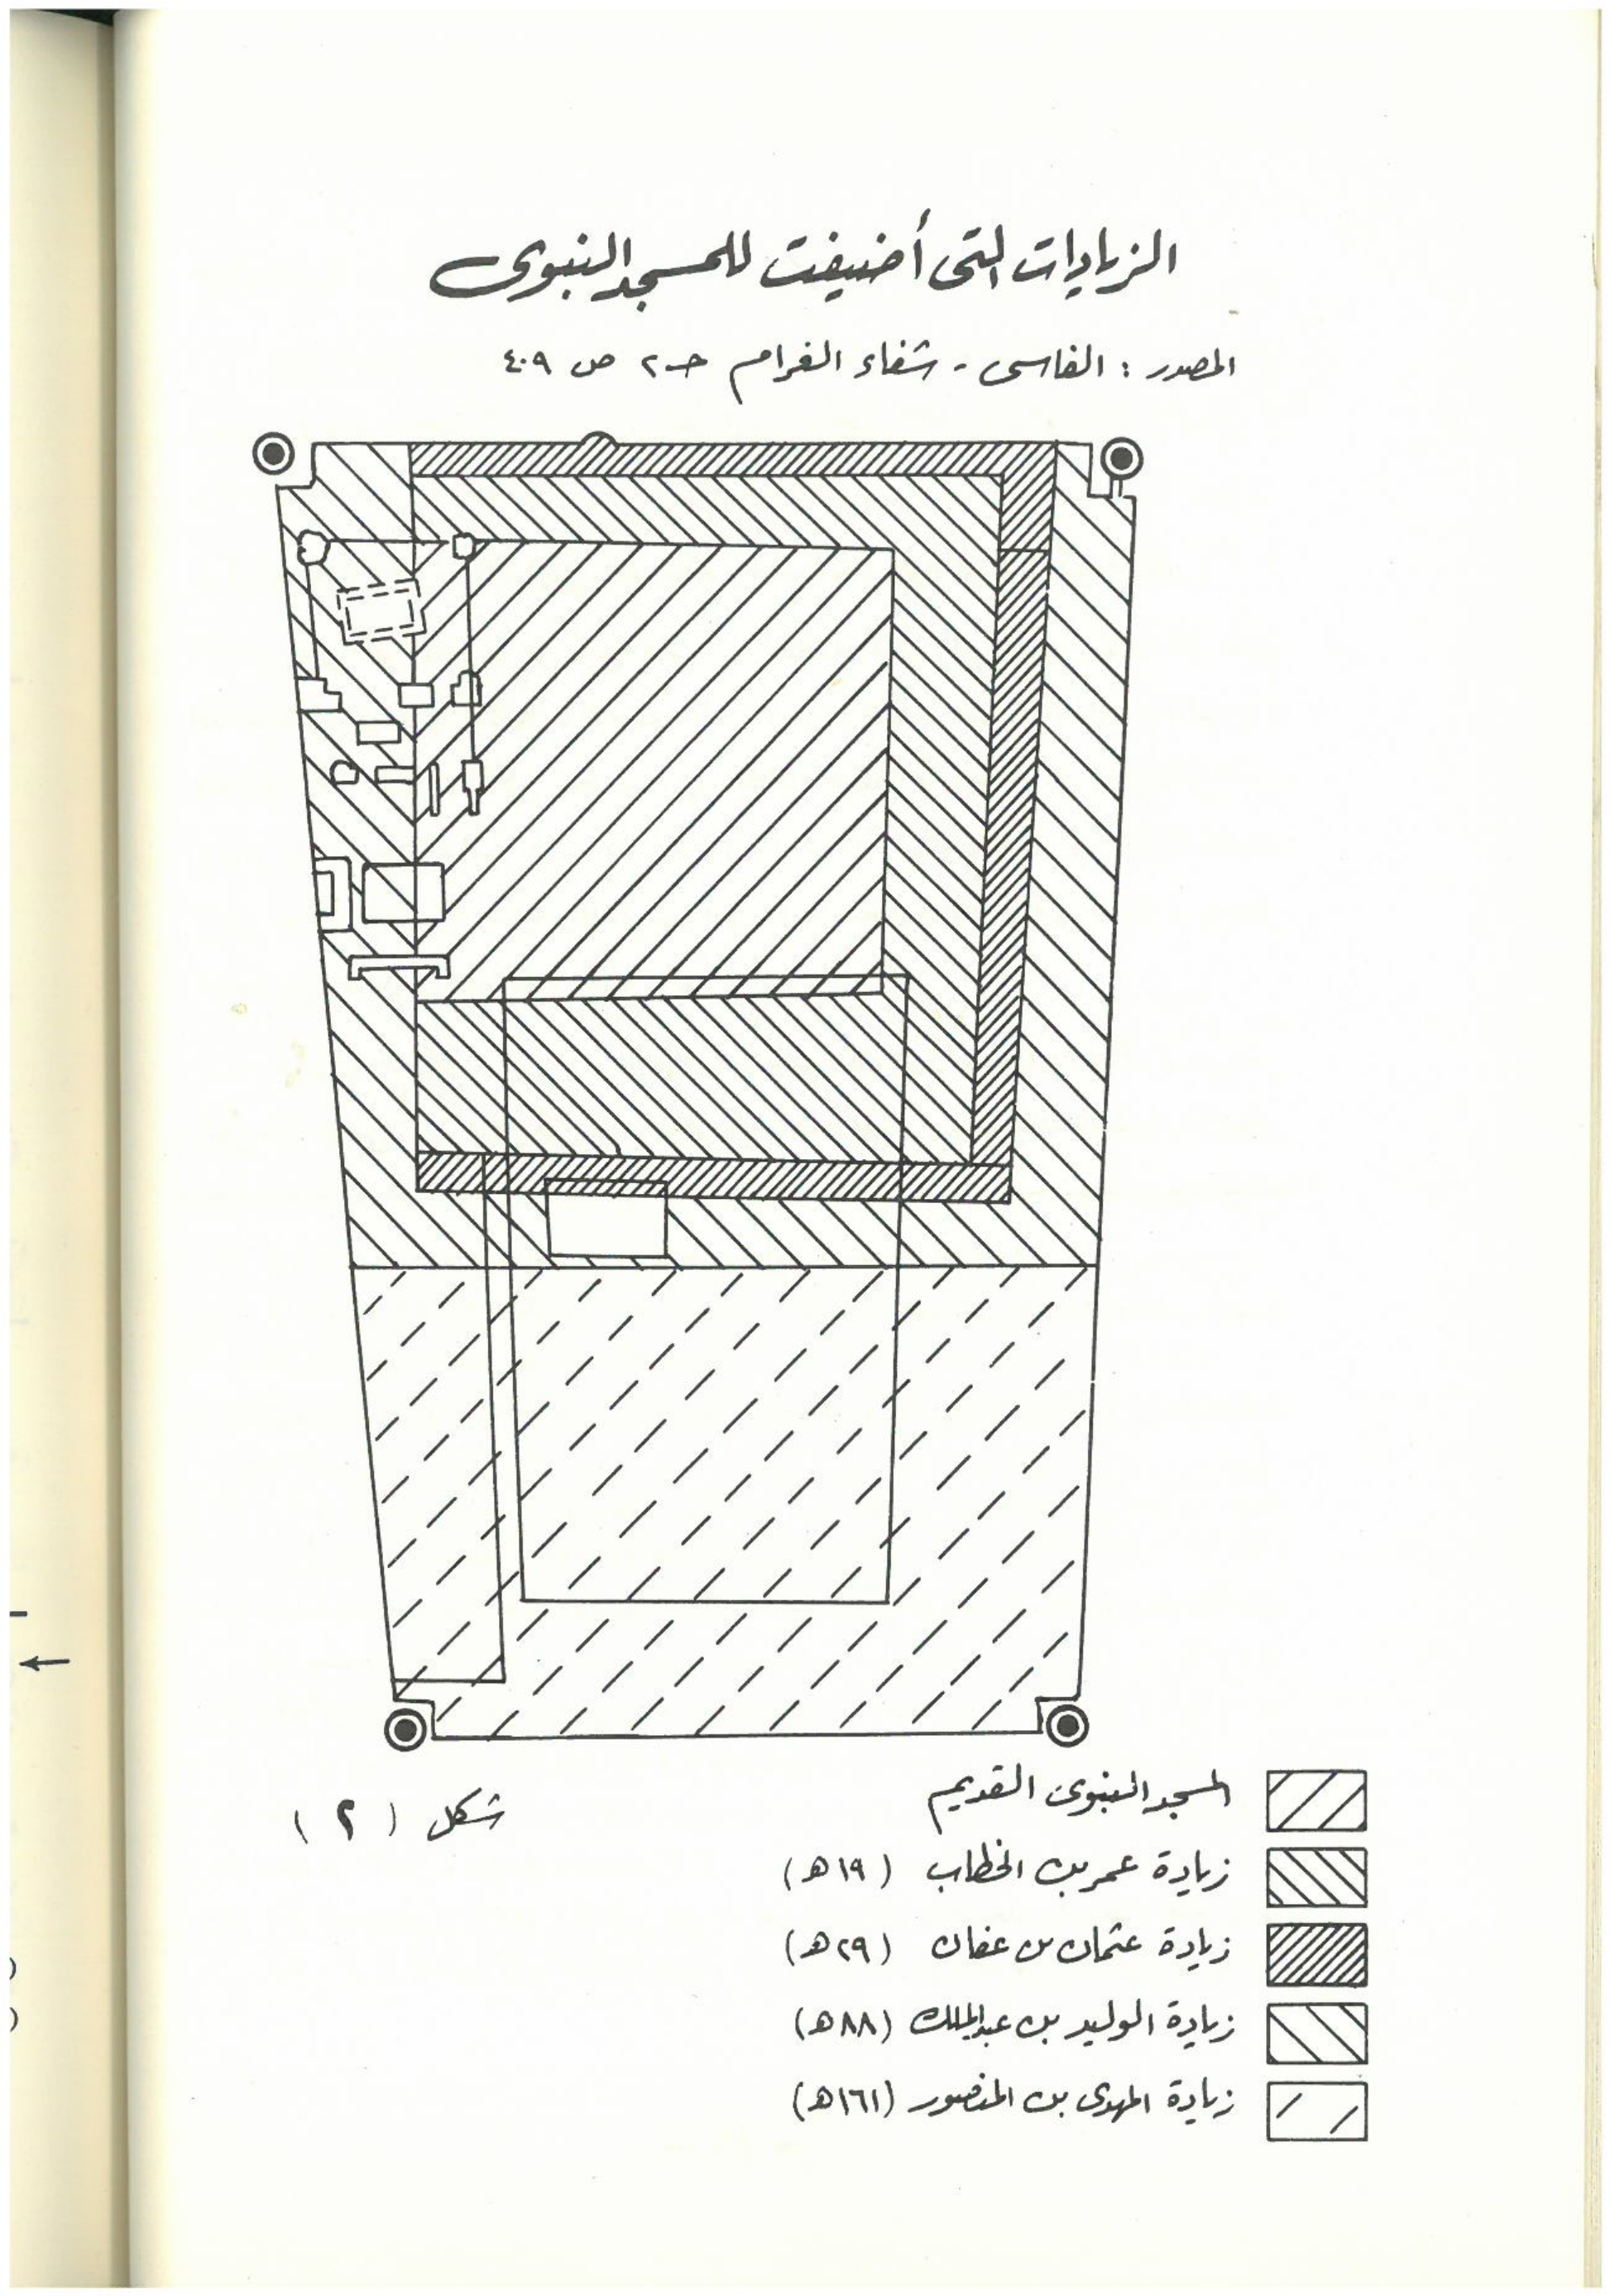 الزيادات التى أضيفت للمسجد النبوى
المصدر : الفاسى - شفاء الغرام حـ ٢ ص ٤٠٩
المسجد النبوى القديم
شكل ( ٢ )
زيادة عمر بن الخطاب ( ١٩ هـ )
زيادة عثمان بن عفان ( ٢٩ هـ )
زيادة الوليد بن عبدالملك ( ٨٨ هـ )
زيادة المهدى بن المنصور ( ١٦١ هـ )